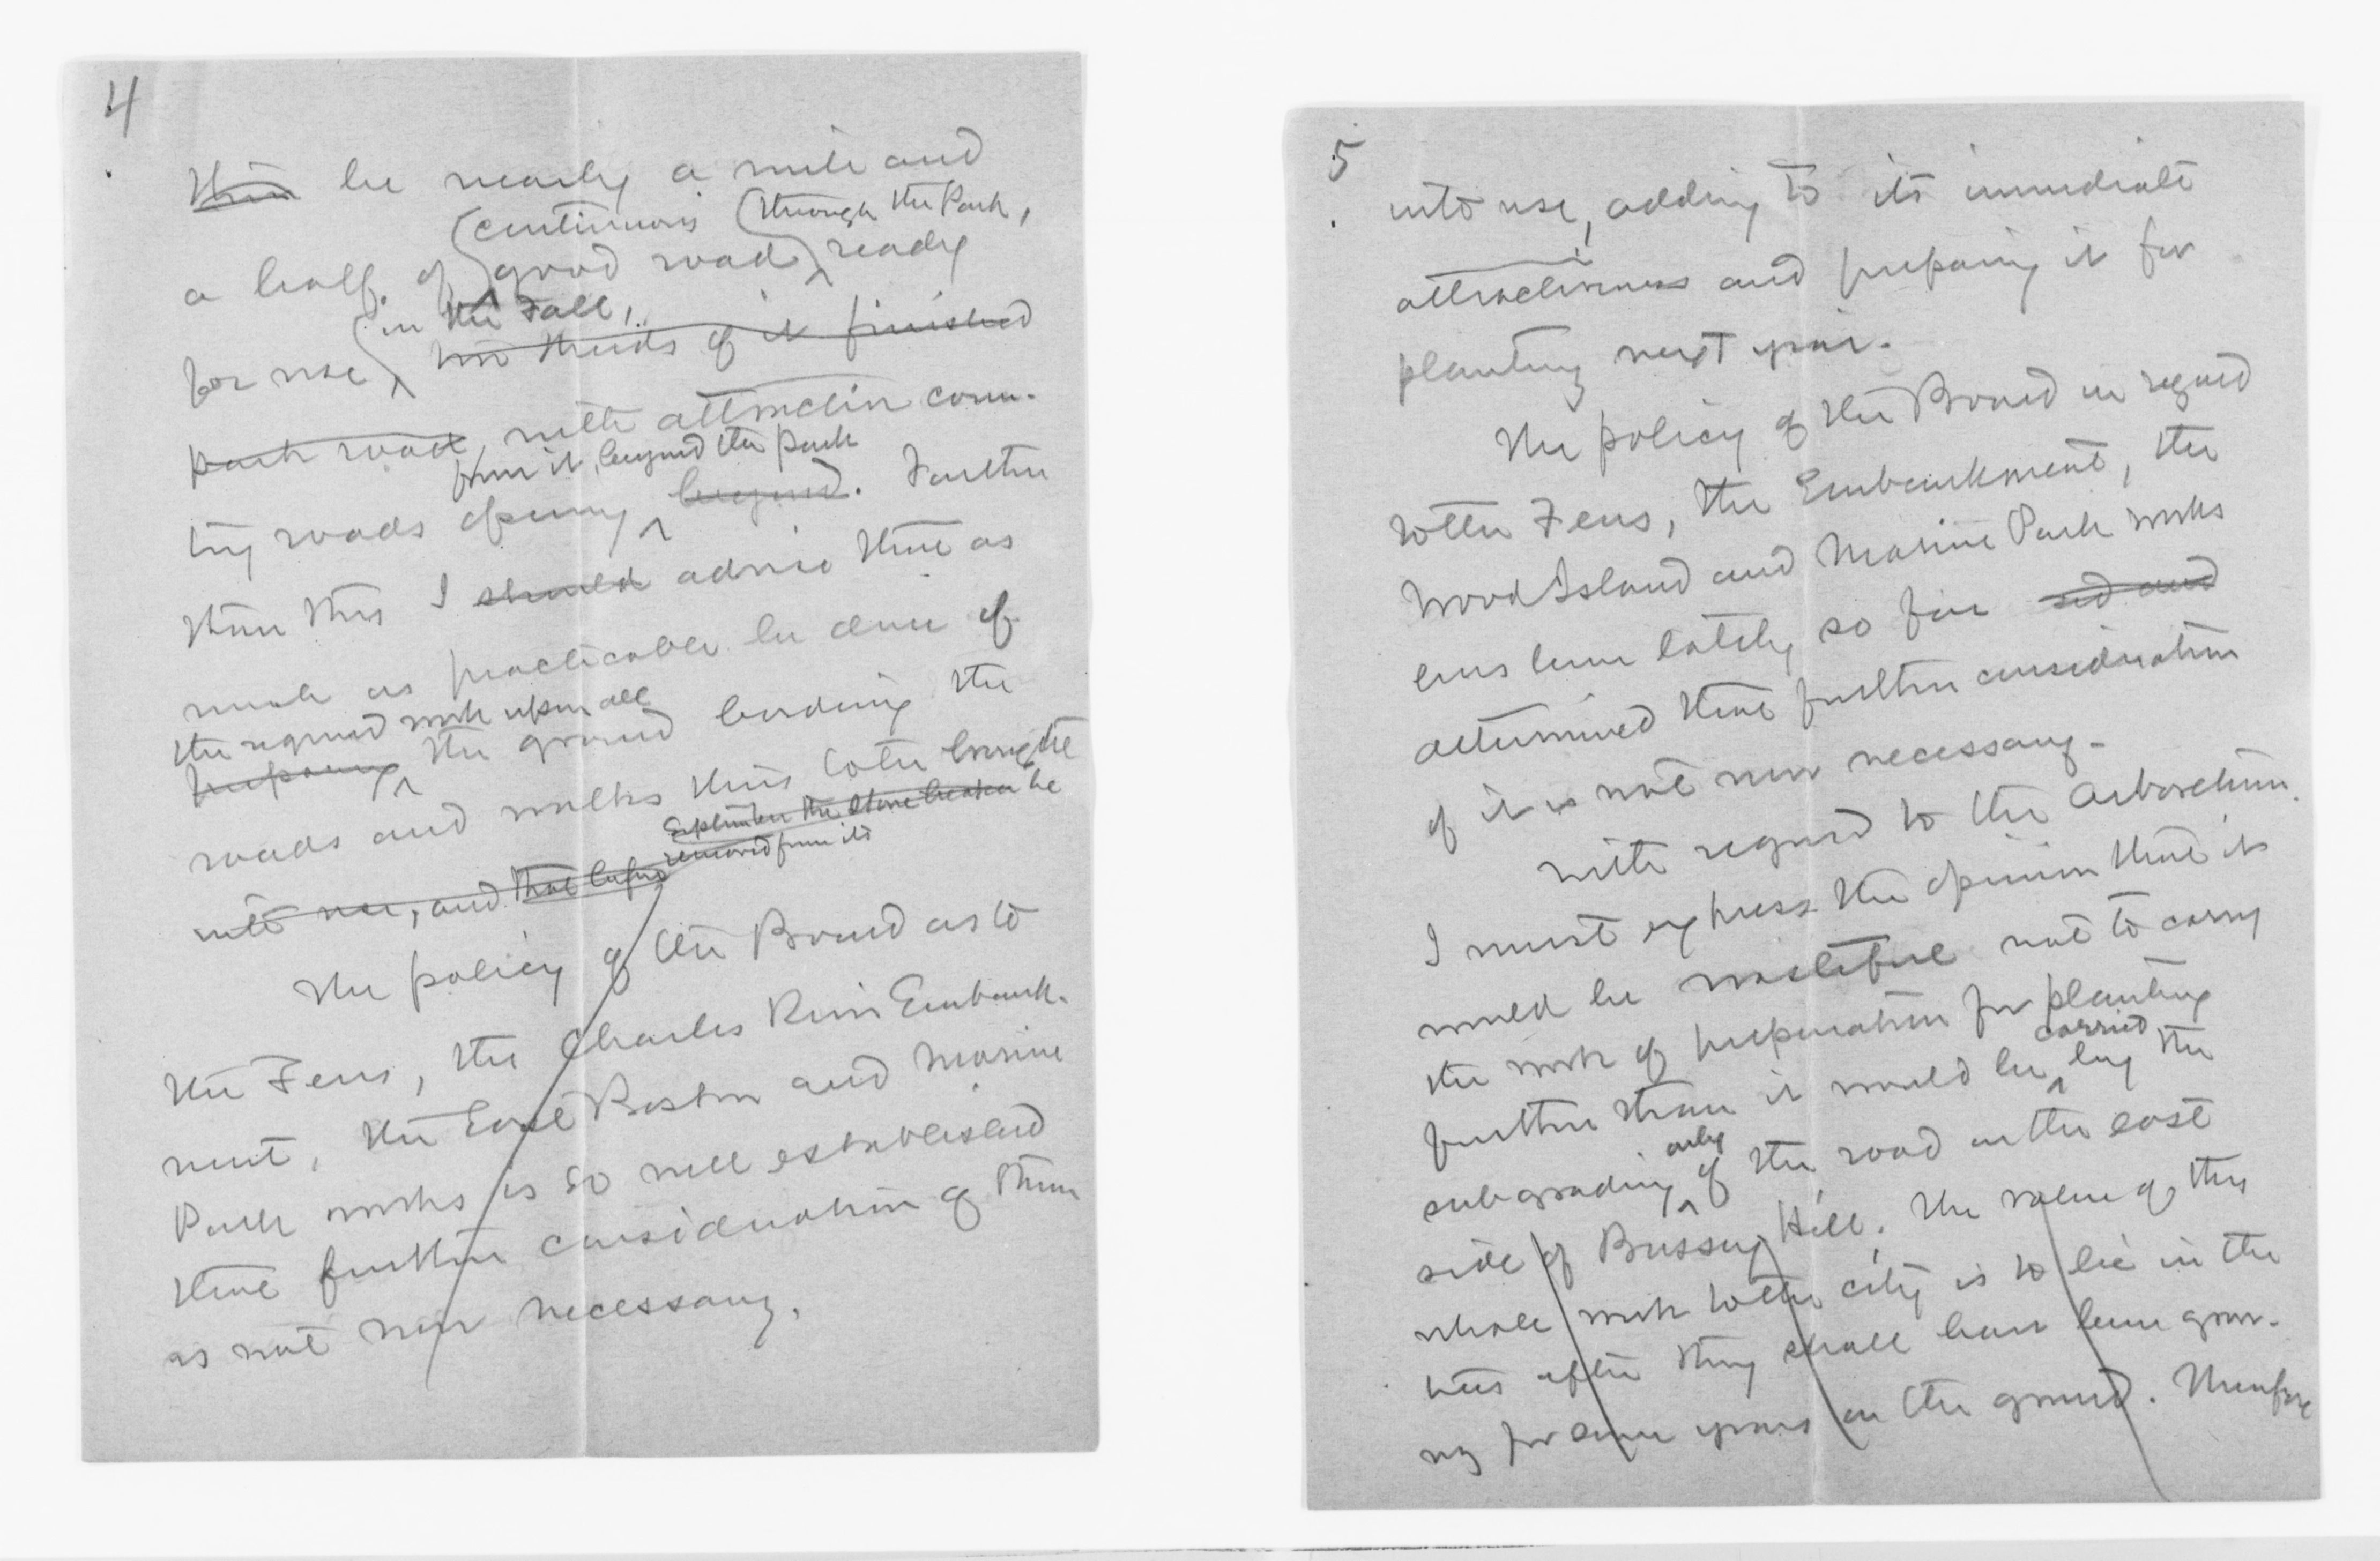 4
then be nearly a mile and
continuous through the Park,
a half of good road ready
in the Fall,
for use two thirds of it finished
park road, with attractive coun-
from it, beyond the park
try roads opening beyond. Further
than this I should advise that as
much as practicable be done of
the required work upon all
preparing the ground bordering the
roads and walks thus to be brought
September the stone breaker be
removed from its
into use, and that before
The policy of the Board as to
the Fens, the Charles River Embank-
ment, the East Boston and Marine
Park works is so well established
that further consideration of them
is not now necessary.
5
into use, adding to its immediate
attractiveness and preparing it for
planting next year.
The policy of the Board in regard
to the Fens, the Embankment, the
Wood Island and Marine Park works
has been lately so far and
determined that further consideration
of it is not now necessary.
With regard to the Arboretum.
I must express the opinion that it
would be wasteful not to carry
the work of preparation for planting
carried
further than it would be by the
only
subgrading of the road on the east
side of Bussey Hill. The value of this
whole work to the city is to lie in the
trees after they shall have been grow-
ing for some years on the ground. Therefore